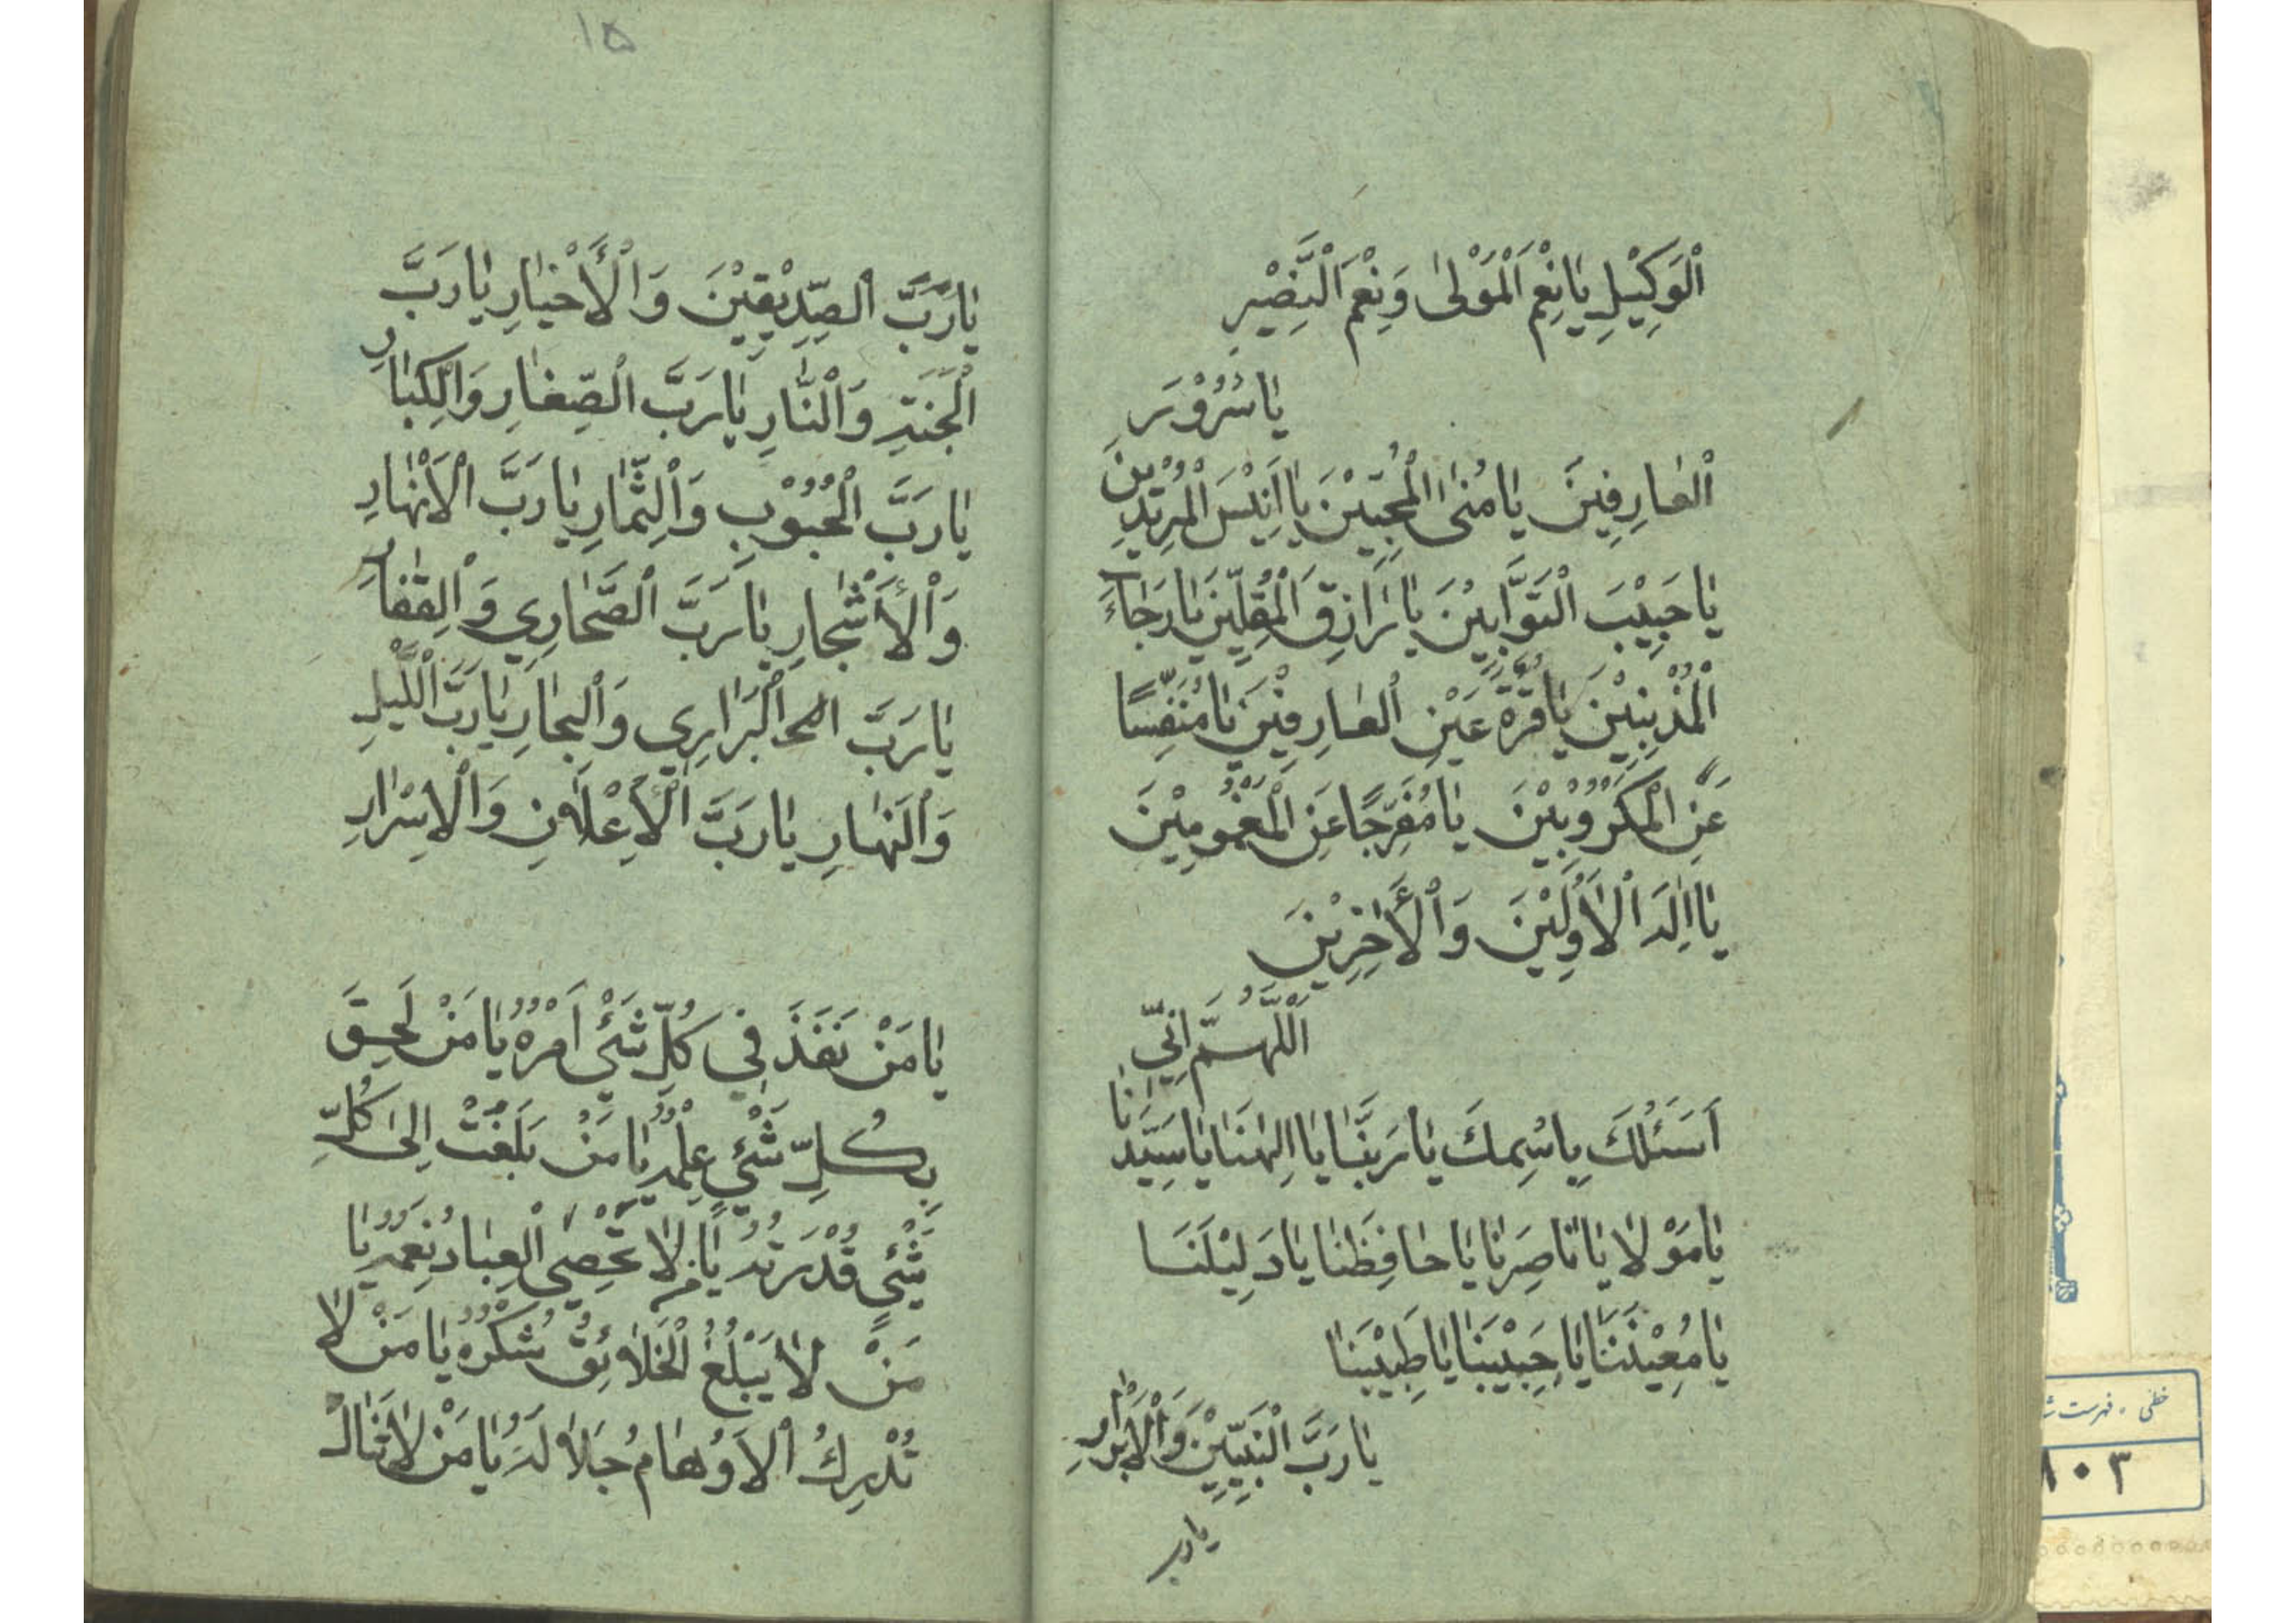 اَلْوَكِيْلِ يٰا نِعْمَ الْمَوْلىٰ وَنِعْمَ النَّصْيْرِ
يٰا سُرُوْرَ
اَلْعٰارِفِينَ يٰا مُنَى الْمُحِبّيْنَ يٰا اَنِيْسَ الْمُرِيْدِيْنَ
يٰا حَبِيْبَ التَّوَّابِيْنَ يٰا رٰازِقَ الْمُقِلّيْنَ يٰا رَجٰاءَ
الْمُذْنِبِيْنَ يٰا قُرَّةَ عَيْنِ الْعٰارِفِيْنَ يٰا مُنَفِّسًا
عَنِ الْمَكْرُوْبِيْنَ يٰا مُفَرِّجًا عَنِ الْمَغْمُومِيْنَ
يٰا اِلٰهَ الْاَوَّلِيْنَ وَالْأٰخِرِيْنَ
اَللّٰهُمَّ اِنِّي
اَسَئَلُكَ بِاسْمِكَ يٰا رَبَّنٰا يٰا اِلٰهَنٰا يٰا سَيِّدَنٰا
يٰا مَوْلٰانٰا يٰا نٰاصِرَنٰا يٰا حٰافِظَنٰا يٰا دَلِيْلَنَا
يٰا مُعِيْنَنَا يٰا حَبِيْبَنٰا يٰا طَبِيْبَنٰا
يٰا رَبَّ النَّبِيّيْنَ وَالْاَبْرٰارِ
يارب
١٥
يٰا رَبَّ الصِّدِّيْقِيْنَ وَالْأَخْيٰارِ يٰا رَبَّ
الْجَنَّةِ وَالْنّٰارِ يٰا رَبَّ الصِّغٰارِ وَالْكِبٰارِ
يٰا رَبَّ الْحُبُوْبِ وَالْثِّمٰارِ يٰا رَبَّ الْاَنْهٰارِ
وَالْأَشْجٰارِ يٰا رَبَّ الصَّحٰارِي وَالْقِفٰارِ
يٰا رَبَّ الْبَرٰارِي وَالْبِحٰارِ يٰا رَبَّ الْلَّيْلِ
وَالْنَهٰارِ يٰا رَبَّ الْأِعْلٰانِ وَالْاِسْرٰارِ
يٰا مَنْ نَفَذَ فِي كُلِّ شَيْئٍ اَمْرُهُ يٰا مَنْ لَحِقَ
بِكُلِّ شَيْئٍ عِلْمُهُ يٰا مَنْ بَلَغَتْ اِلىٰ كُلِّ
شَيْئٍ قُدْرَتُهُ يٰا مَنْ لٰا تُحْصِي الْعِبٰادُ نِعَمَهُ يٰا
مَنْ لٰا يَبْلُغُ الْخَلٰائِقُ شُكْرَهُ يٰا مَنْ لٰا
تُدْرِكُ الْاَوْهٰامُ جَلٰالَهُ يٰا مَنْ لٰا تَنٰالُ
خطی ، فهرست
٨٠٣